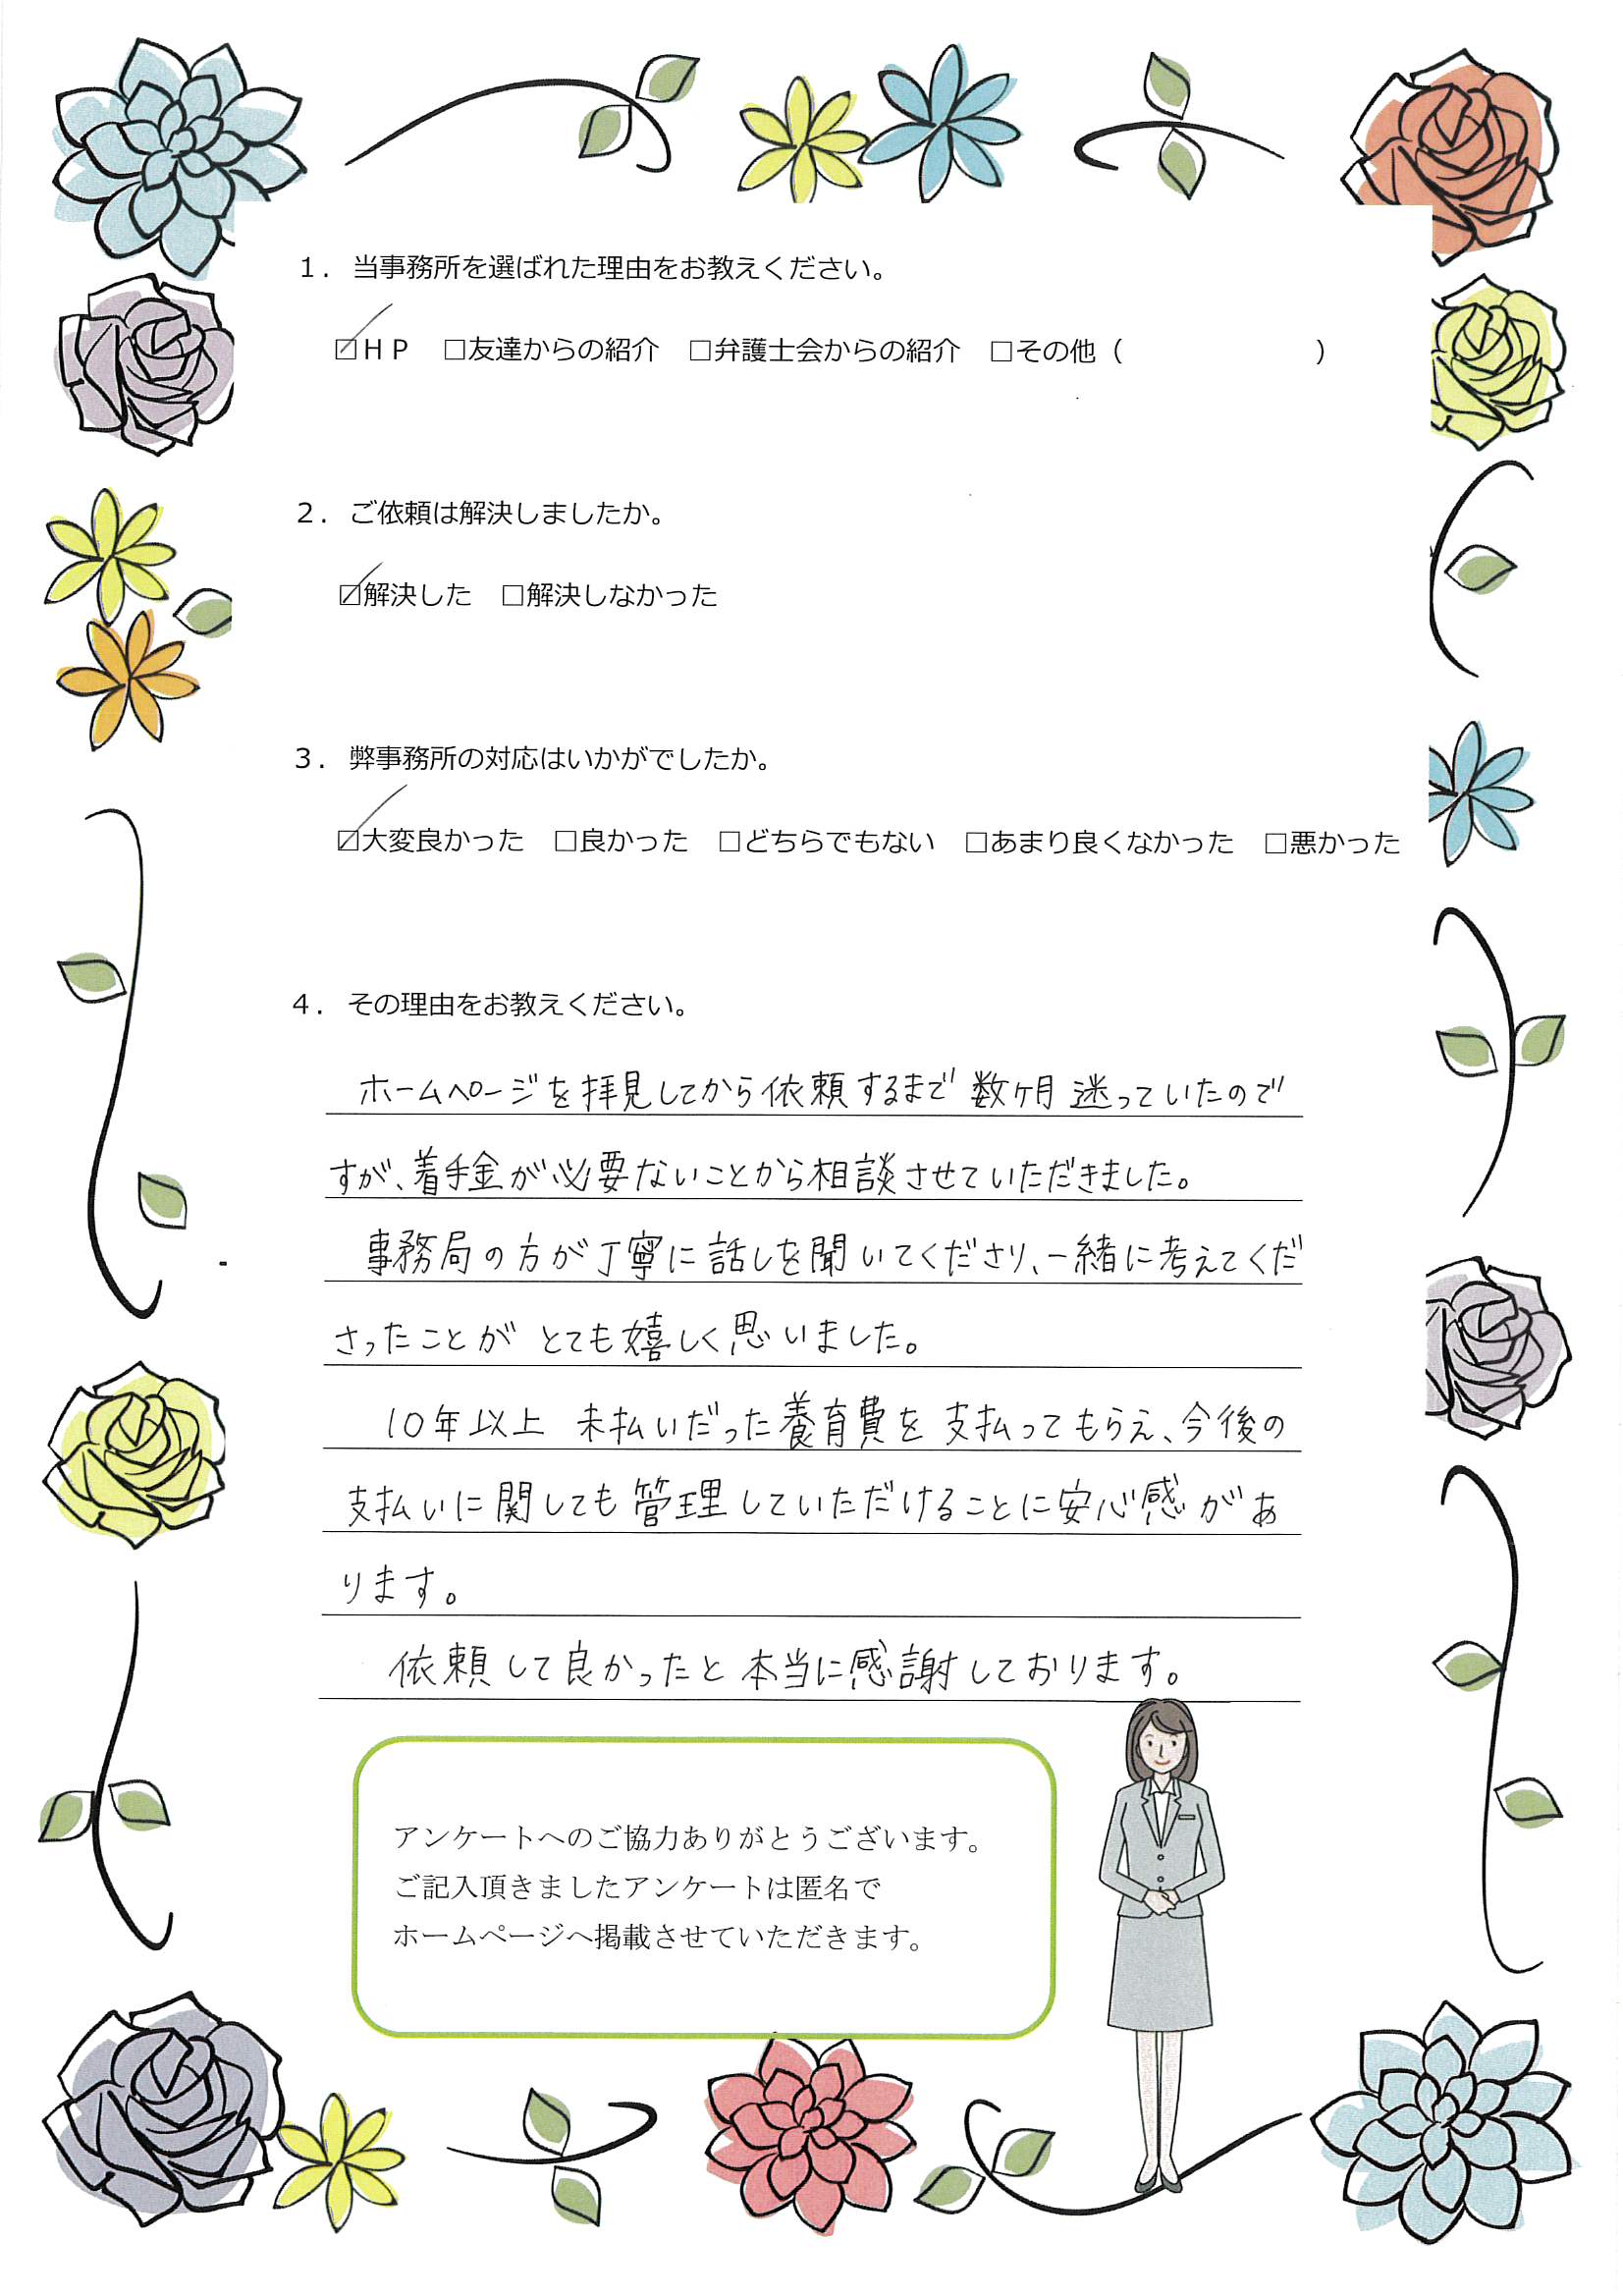 １．当事務所を選ばれた理由をお教えください。
☑ＨＰ　□友達からの紹介　□弁護士会からの紹介　□その他（　　　　　　　）
２．ご依頼は解決しましたか。
☑解決した　□解決しなかった
３．弊事務所の対応はいかがでしたか。
☑大変良かった　□良かった　□どちらでもない　□あまり良くなかった　□悪かった
４．その理由をお教えください。
ホームページを拝見してから依頼するまで数ケ月迷っていたので
すが、着手金が必要ないことから相談させていただきました。
事務局の方が丁寧に話しを聞いてくださり、一緒に考えてくだ
さったことがとても嬉しく思いました。
10年以上 未払いだった養育費を支払ってもらえ、今後の
支払いに関しても管理していただけることに安心感があ
ります。
依頼して良かったと本当に感謝しております。
アンケートへのご協力ありがとうございます。
ご記入頂きましたアンケートは匿名で
ホームページへ掲載させていただきます。